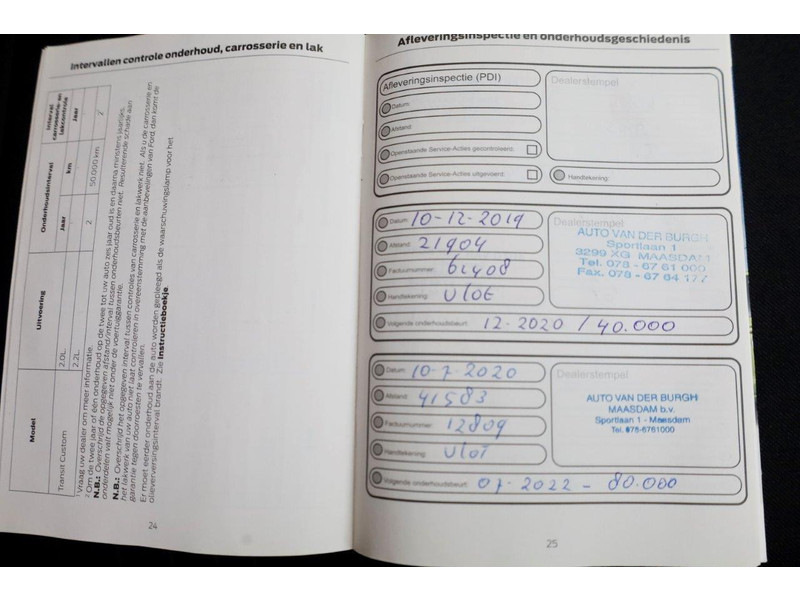 Intervallen controle onderhoud, carrosserie en lak
Model
Uitvoering
Onderhoudsinterval
Interval carrosserie- en lakcontrole
Jaar
km
Jaar
Transit Custom
2.0L
2
50.000 km
2²
2.2L
¹ Vraag uw dealer om meer informatie.
² Om de twee jaar of één onderhoud op de twee tot uw auto zes jaar oud is en daarna minstens jaarlijks.
N.B.: Overschrijd de opgegeven afstand/interval tussen onderhoudsbeurten niet. Resulterende schade aan
onderdelen valt mogelijk niet onder de voertuiggarantie.
N.B.: Overschrijd het opgegeven interval tussen controles van carrosserie en lakwerk niet. Als u de carrosserie en
het lakwerk van uw auto niet laat controleren in overeenstemming met de aanbevelingen van Ford, dan komt de
garantie tegen doorroesten te vervallen.
Er moet eerder onderhoud aan de auto worden gepleegd als de waarschuwingslamp voor het
olieverversingsinterval brandt. Zie Instructieboekje
24
Afleveringsinspectie en onderhoudsgeschiedenis
Afleveringsinspectie (PDI)
Dealerstempel
Datum:
Afstand:
Openstaande Service-Acties gecontroleerd:
Openstaande Service-Acties uitgevoerd:
Handtekening:
Datum: 10-12-2019
Afstand: 21904
Factuurnummer: 61408
Handtekening: Vlot
Dealerstempel
AUTO VAN DER BURGH
Sportlaan 1
3299 XG MAASDAM
Tel. 078 - 67 61 000
Fax. 078 - 67 64 177
Volgende onderhoudsbeurt: 12-2020 / 40.000
Datum: 10-7-2020
Afstand: 41583
Factuurnummer: 12809
Handtekening: Vlot
Dealerstempel
AUTO VAN DER BURGH
MAASDAM b.v.
Sportlaan 1 - Maasdam
Tel. 078-6761000
Volgende onderhoudsbeurt: 07-2022 - 80.000
25